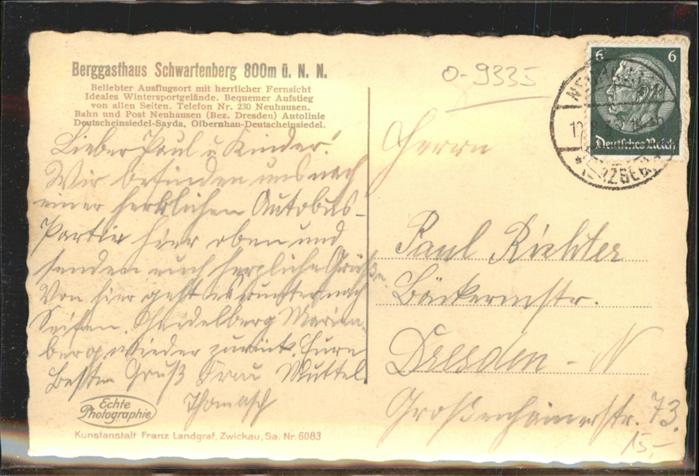 Berggasthaus Schwartenberg 800m ü. N. N.
Beliebter Ausflugsort mit herrlicher Fernsicht
Ideales Wintersportgelände. Bequemer Aufstieg
von allen Seiten. Telefon Nr. 230 Neuhausen.
Bahn und Post Neuhausen (Bez. Dresden) Autolinie
Deutscheinsiedel-Sayda, Olbernhau-Deutscheinsiedel.
Lieber Paul u. Kinder!
Wir befinden uns nach
einer herrlichen Autobus-
Partie hier oben und
senden euch herzliche Grüße
Von hier geht es runter nach
Seiffen. Heidelberg Marien-
berg wieder zurück. Eure
besten Gruß Frau Muttel
Thomasch
Echte
Photographie
Kunstanstalt Franz Landgraf, Zwickau, Sa. Nr. 6083
0-9335
6 6
Deutsches Reich
(ERZGEB)
Herrn
Paul Richter
Bäckermstr.
Dresden-N
Großenhainerstr. 73.
15,-